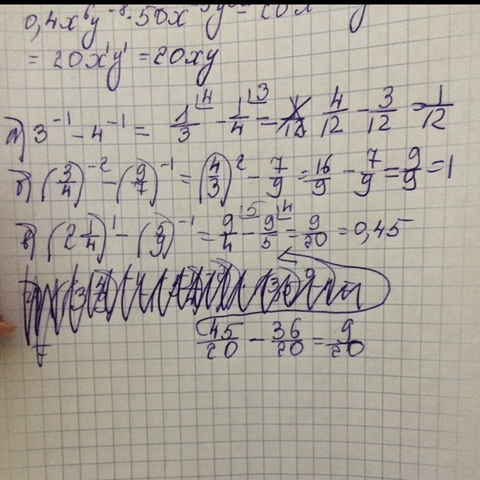 0,4x⁶y⁻⁸·50x
= 20x¹y¹ = 20xy
а) 3⁻¹ - 4⁻¹ = 1/3 ⌊4 - 1/4 ⌊3 = 4/12 - 3/12 = 1/12
б) (3/4)⁻² - (9/7)⁻¹ = (4/3)² - 7/9 = 16/9 - 7/9 = 9/9 = 1
в) (2 1/4)¹ - (5/9)⁻¹ = 9/4 ⌊5 - 9/5 ⌊4 = 9/20 = 0,45
45/20 - 36/20 = 9/20